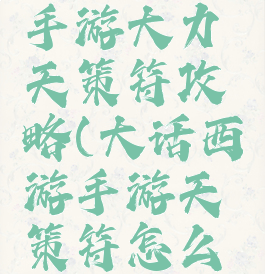 手游大力
天策符攻
略(大话西
游手游天
策符怎么